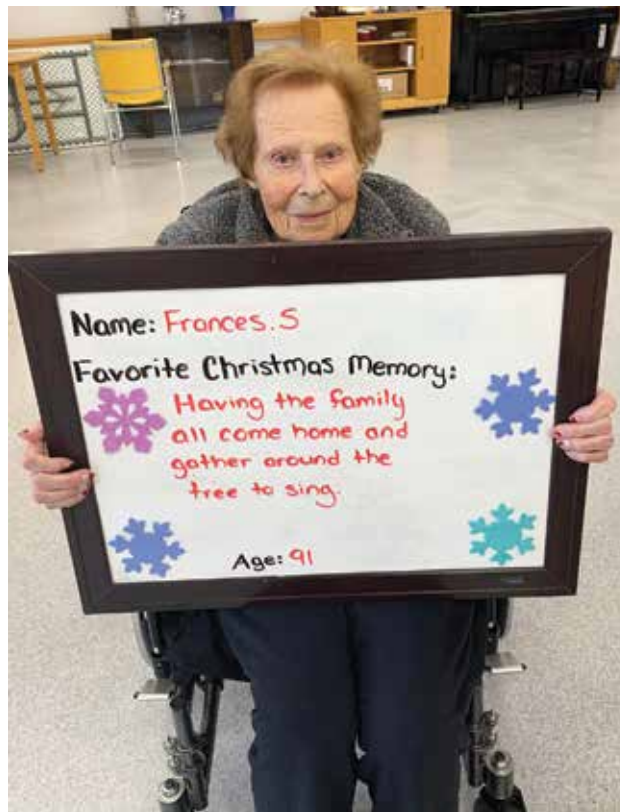 Name: Frances.S
Favorite Christmas Memory:
Having the family
all come home and
gather around the
tree to sing.
Age: 91